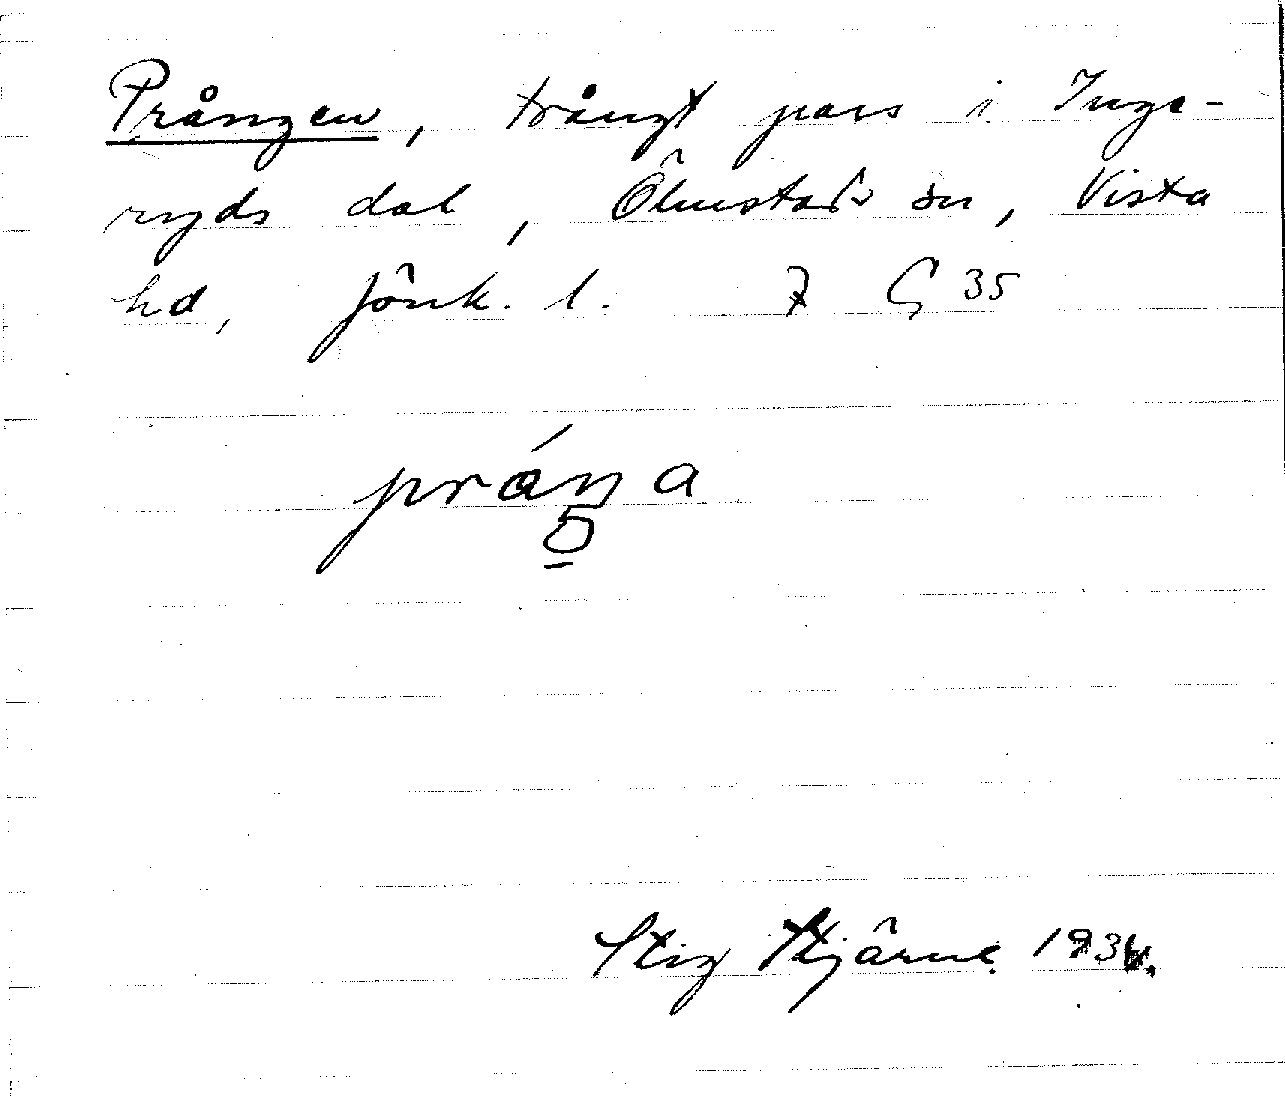 Prången, trångt pass i Inge-
ryds dal, Ölmstads sn, Vista
hd, Jönk. l. 7 G 35
práŋa
Stig Stjärne.